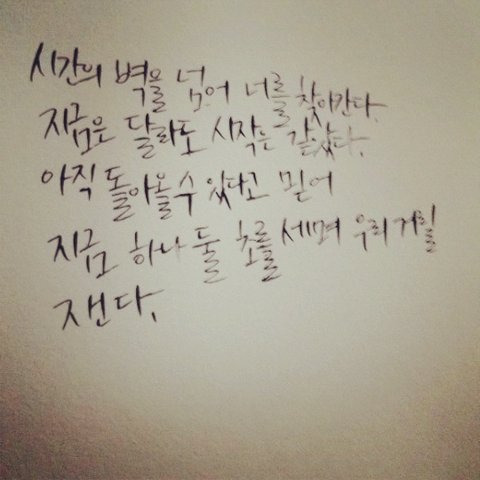 시간의 벽을 넘어 너를 찾아간다.
지금은 달라도 시작은 같았다.
아직 돌아올 수 있다고 믿어
지금 하나 둘 초를 세며 우리 거릴
잰다.